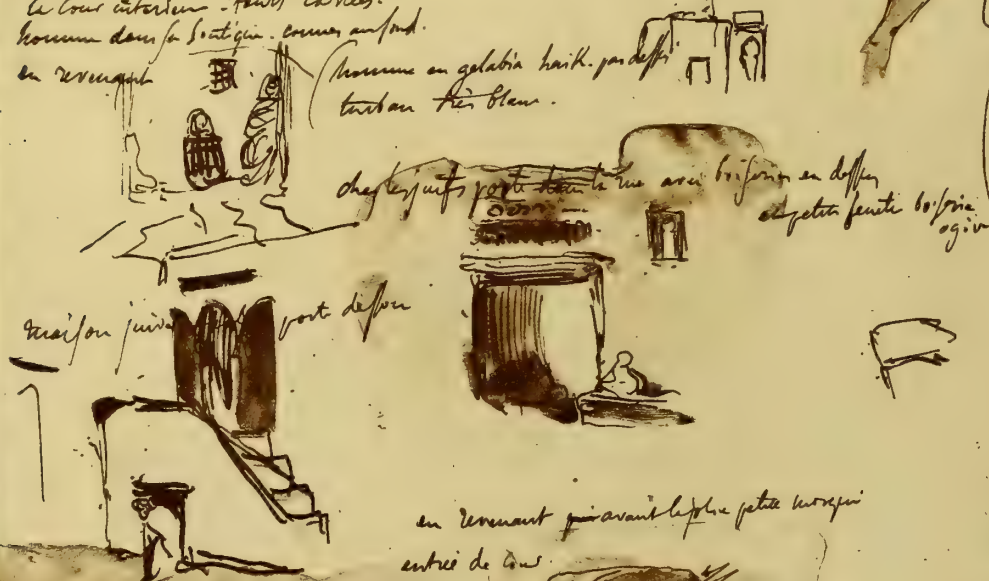 la cour intérieure - tours carrées.
homme dans sa boutique. comme au fond.
en revenant
homme en gelabia haik. par dessus
turban très blanc.
chez les juifs porte dans la rue avec boiseries en dessus
et petite fenetre boiserie
ogive
maison juive porte dessous
en revenant auparavant la jolie petite mosquée
entrée de cour